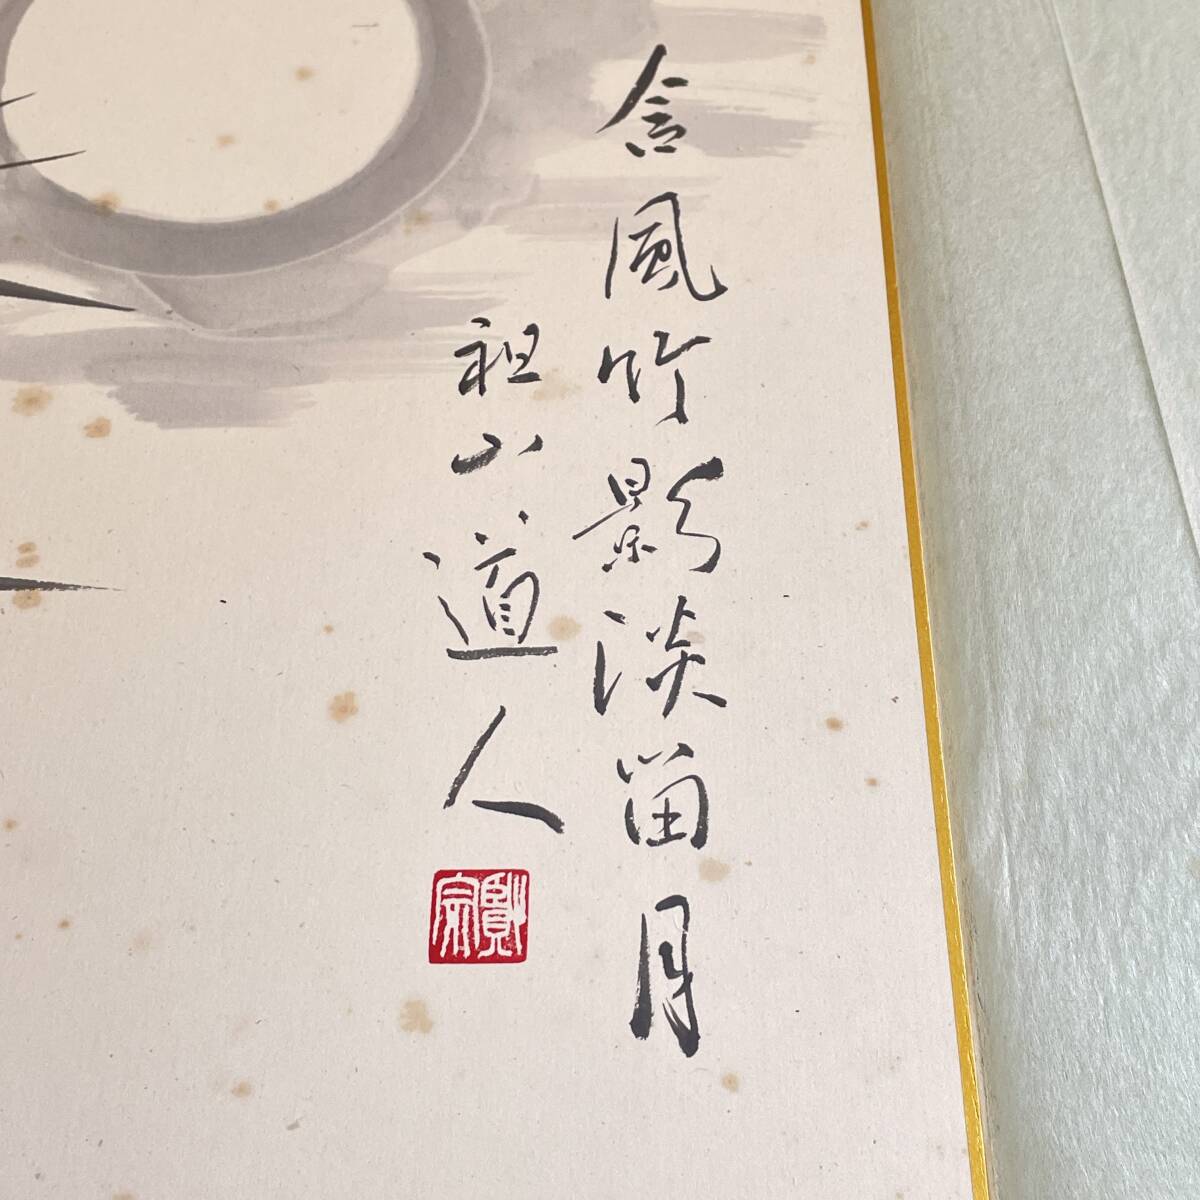 含風竹影淡留月
祖山道人
賢宗